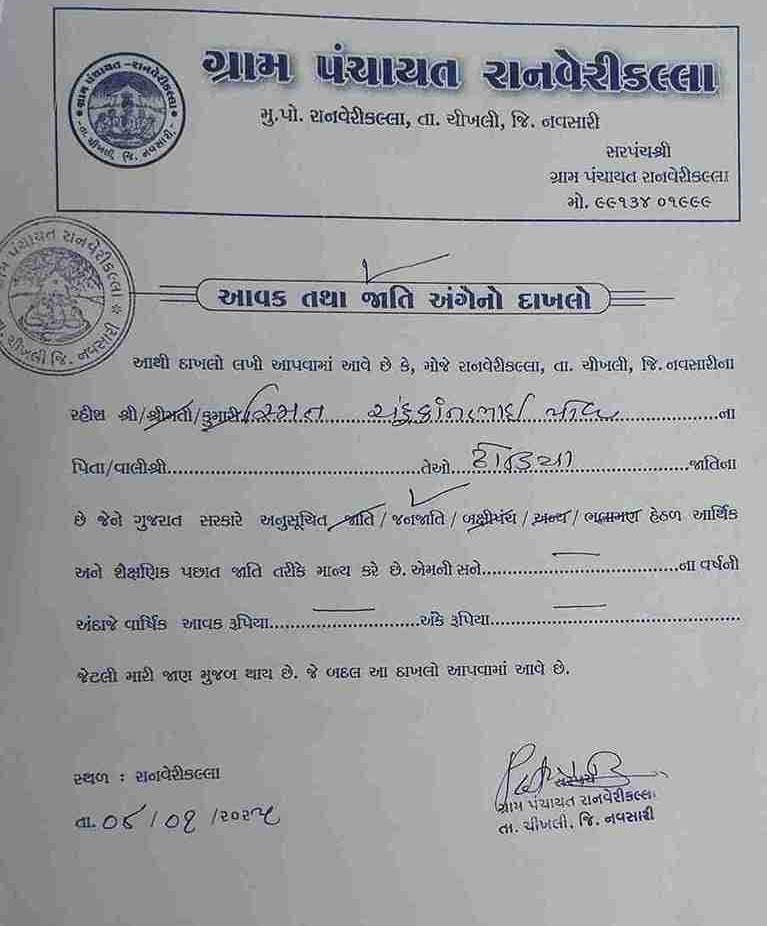 ગ્રામ પંચાયત રાનવેરીકલ્લા
મુ.પો. રાનવેરીકલ્લા, તા. ચીખલી, જિ. નવસારી
સરપંચશ્રી
ગ્રામ પંચાયત રાનવેરીકલ્લા
મો. ૯૯૧૩૪ ૦૧૯૯૯
ગ્રામ પંચાયત - રાનવેરીકલ્લા
તા. ચીખલી, જિ. નવસારી.
ગ્રામ પંચાયત રાનવેરીકલ્લા
તા. ચીખલી જિ. નવસારી
આવક તથા જાતિ અંગેનો દાખલો
આથી દાખલો લખી આપવામાં આવે છે કે, મોજે રાનવેરીકલ્લા, તા. ચીખલી, જિ. નવસારીના
રહીશ શ્રી/શ્રીમતી/કુમારી સ્મિત ચંદ્રકાંતભાઈ ના
પિતા/વાલીશ્રી તેઓ ઢોડિયા જાતિના
છે જેને ગુજરાત સરકારે અનુસૂચિત જાતિ / જનજાતિ / બક્ષીપંચ / અન્ય / ભલામણ હેઠળ આર્થિક
અને શૈક્ષણિક પછાત જાતિ તરીકે માન્ય કરે છે. એમની સને ના વર્ષની
અંદાજે વાર્ષિક આવક રૂપિયા અંકે રૂપિયા
જેટલી મારી જાણ મુજબ થાય છે. જે બદલ આ દાખલો આપવામાં આવે છે.
સ્થળ : રાનવેરીકલ્લા
તા. /૨૦૨૫
સરપંચ
ગ્રામ પંચાયત રાનવેરીકલ્લા
તા. ચીખલી, જિ. નવસારી